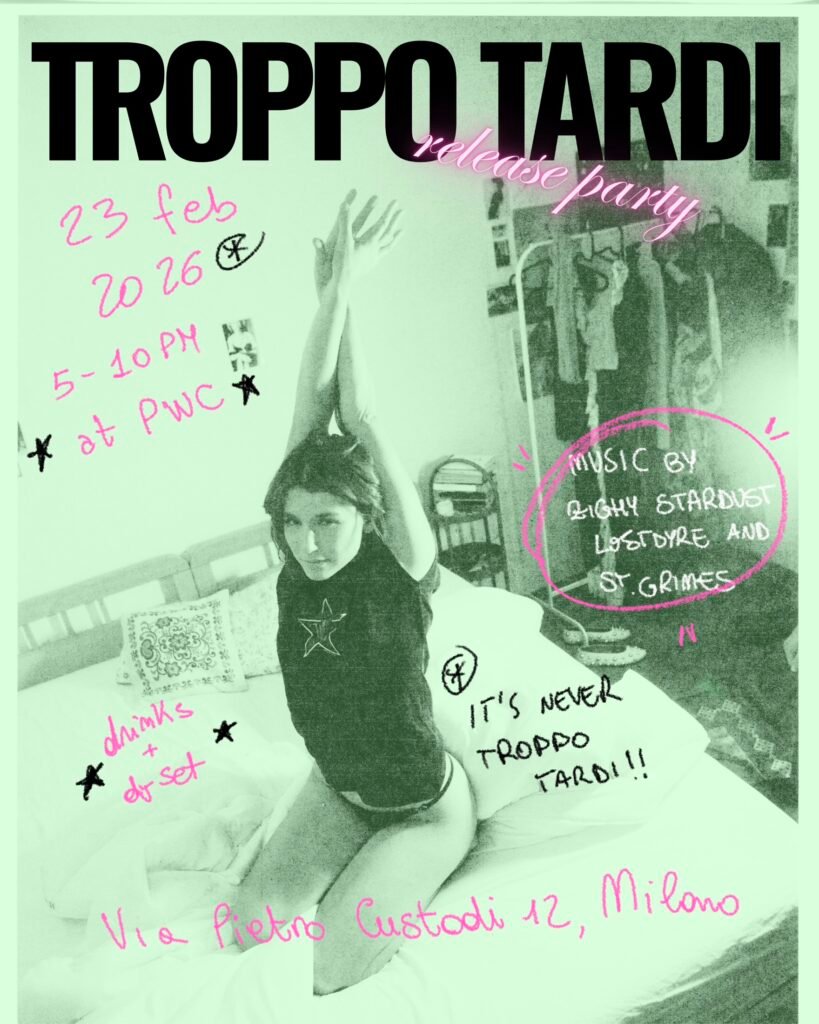 TROPPO TARDI
release party
23 feb
2026
5-10 PM
at PWC
MUSIC BY
ZIGHY STARDUST
LOSTDYRE AND
ST. GRIMES
IT'S NEVER
TROPPO
TARDI!!
drinks
+
dj set
Via Pietro Custodi 12, Milano